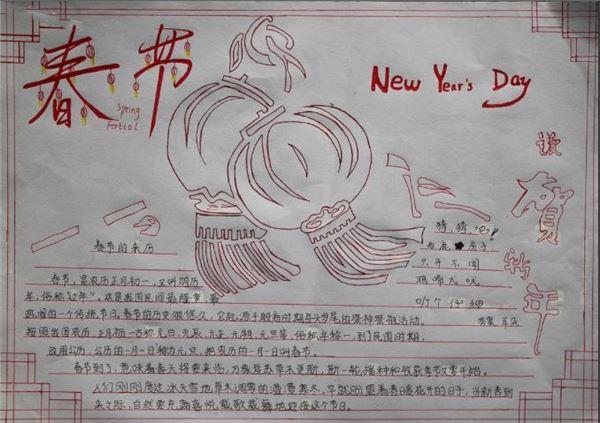 春节
Spring
Fertiol
New Year's Day
贺新年
猜猜吧!
房子
只开不闭
鸡啼犬吠
听个仔细
答案:耳朵
春节的来历
春节,是农历正月初一,又叫阴历
年,俗称“过年”,这是我国民间最隆重、最
热闹的一个传统节日。春节的历史很悠久,它起源于殷商时期年头岁尾的祭神祭祖活动。
按照我国农历,正月初一古称元日、元辰、元正、元朔、元旦等,俗称年初一,到了民国时期,
改用公历,公历的一月一日称为元旦,把农历的一月一日叫春节。
春节到了,意味着春天将要来临,万象复苏草木更新,新一轮播种和收获季节又要开始。
人们刚刚度过冰天雪地草木凋零的漫漫寒冬,早就盼望着春暖花开的日子,当新春到
来之际,自然要充满喜悦载歌载舞地迎接这个节日。